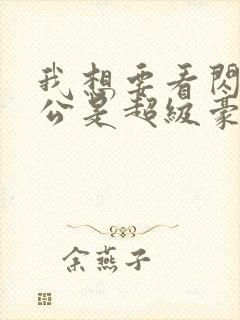 我想要看閃
公是超級豪
余燕子